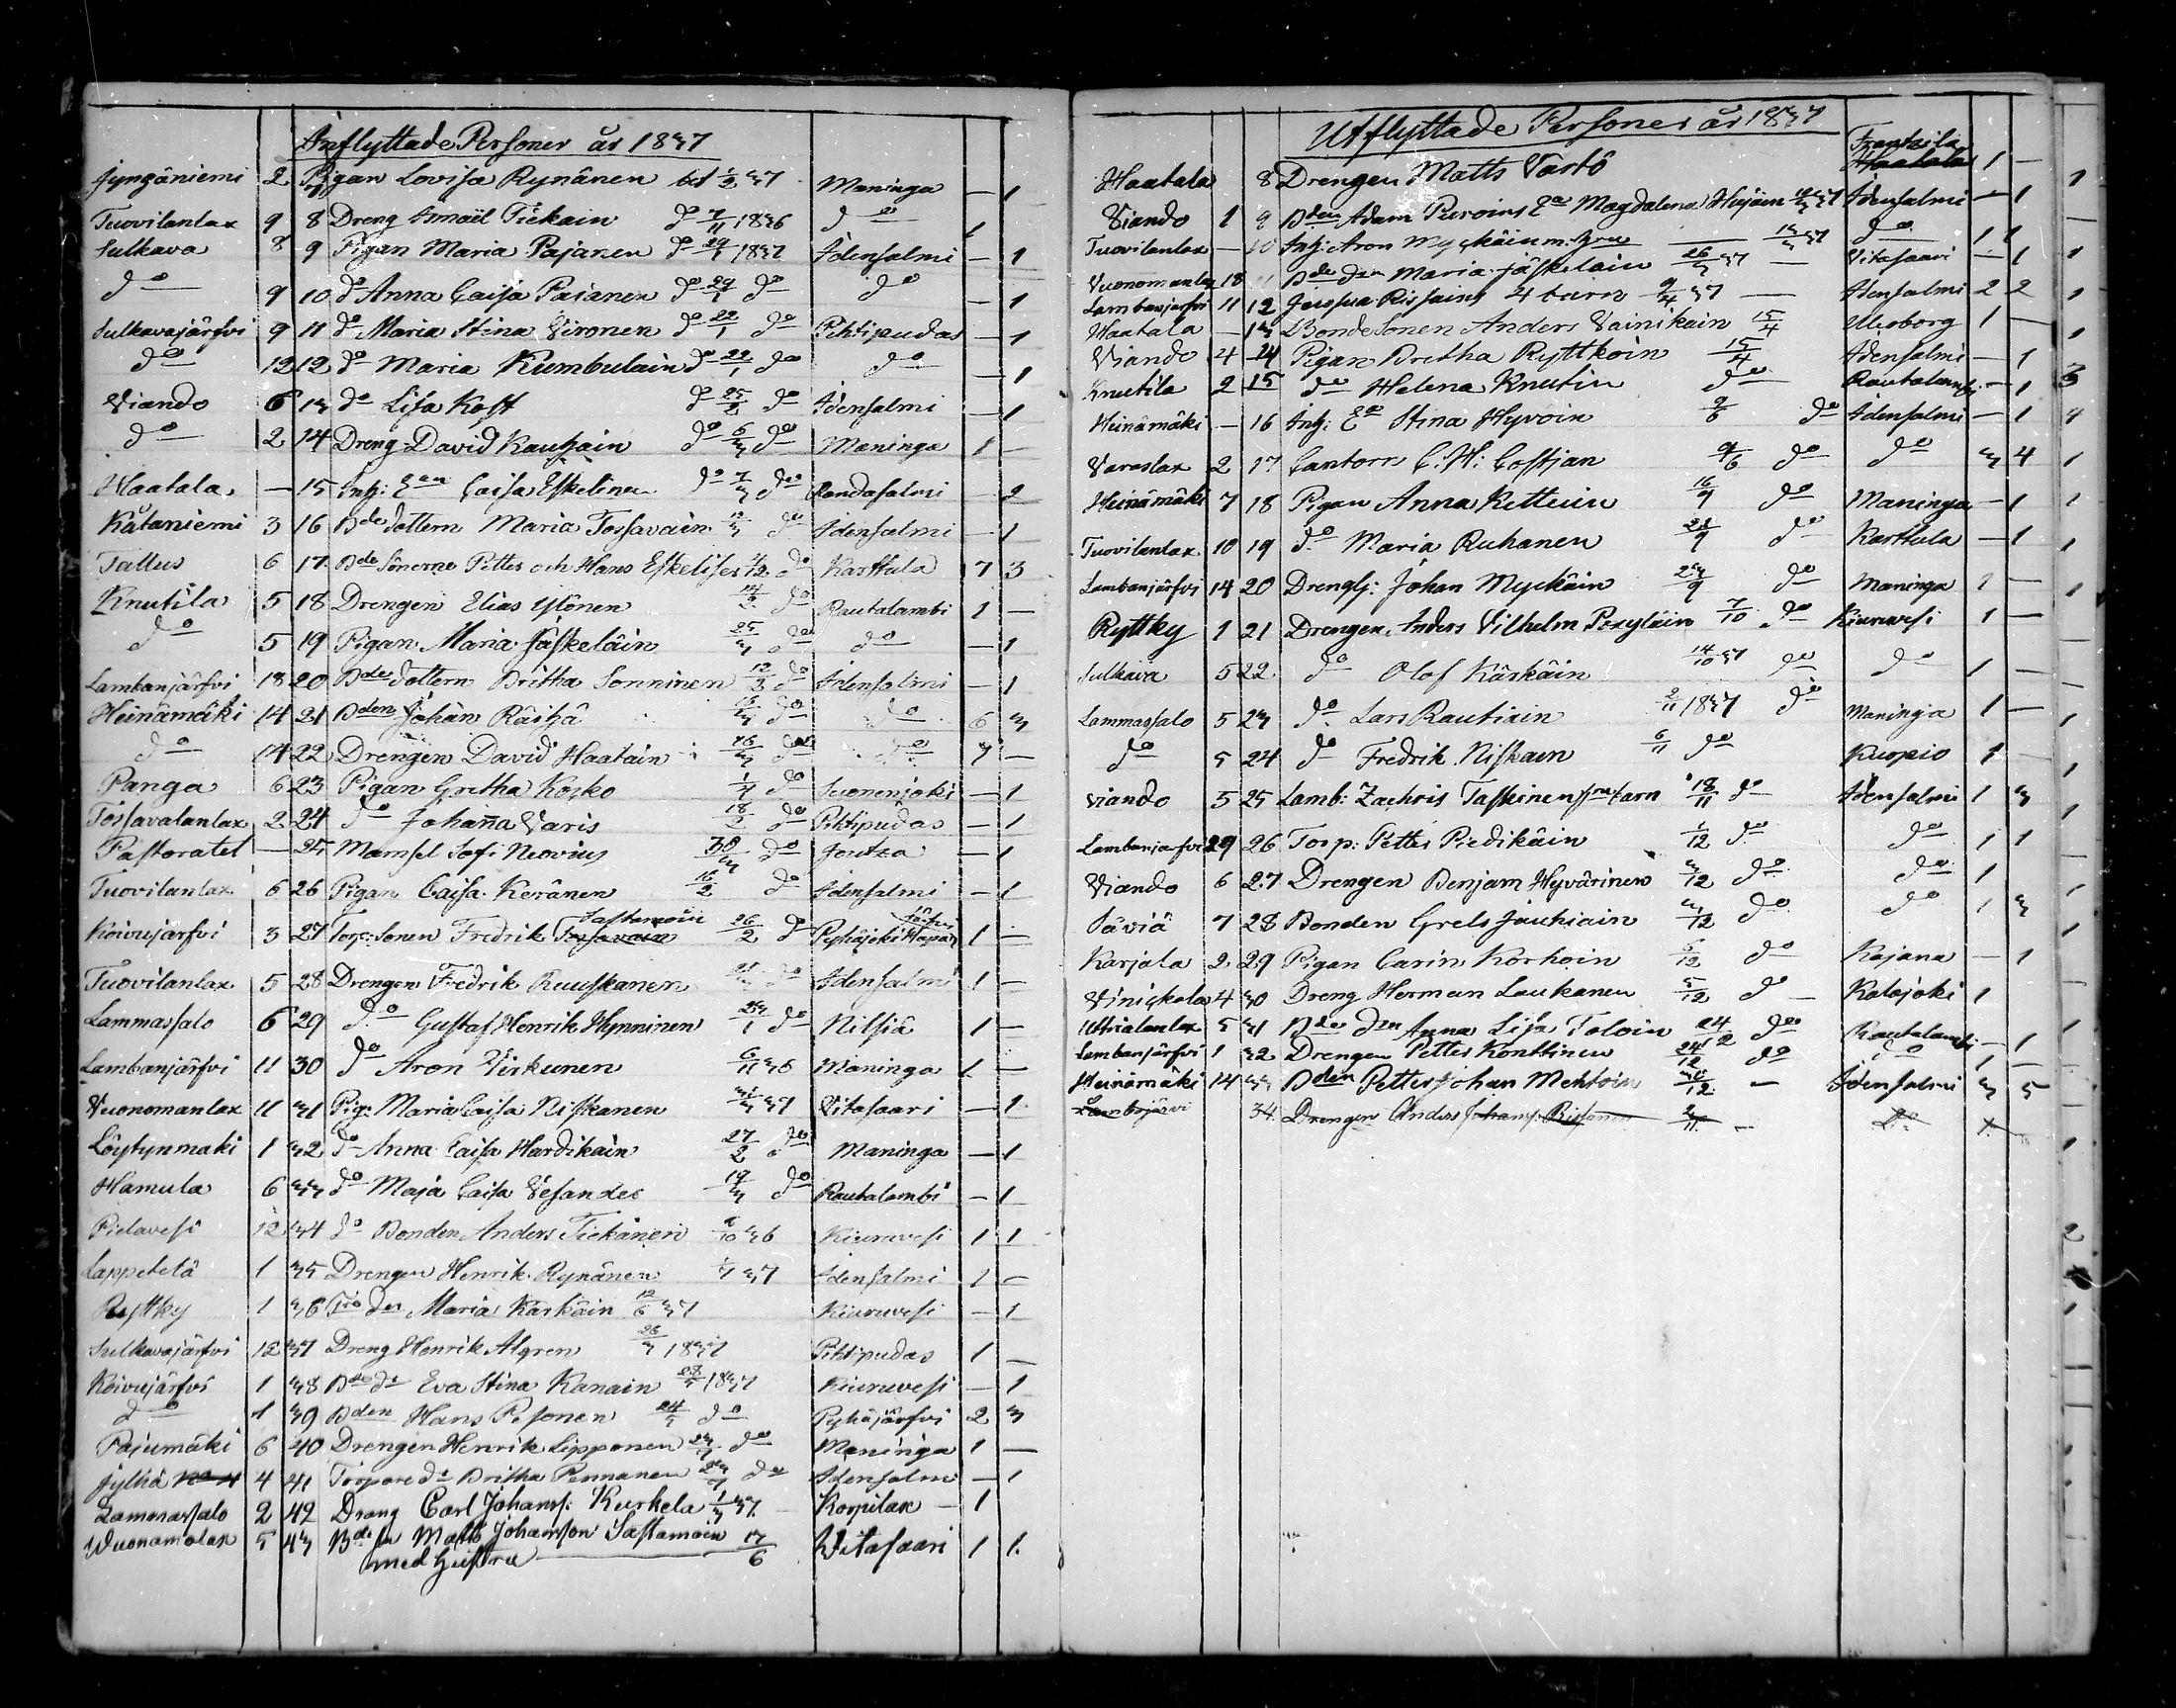 Inflyttade Personer år 1837
Jyngäniemi 2 7 Pigan Lovisa Rynänen bet 1/2 37 Maninga — 1
Tuovilanlax 9 8 Dreng Ismaël Tiekain do 7/11 1836 do 1
Sulkava 8 9 Pigan Maria Pajanen do 29/1 1837 Idensalmi — 1
do 9 10 do Anna Caisa Paianen do 29/1 do do — 1
Sulkavajärfvi 9 11 do Maria Stina Vironen do 22/1 do Pihtipudas — 1
do 12 12 do Maria Kumbulain do 22/1 do do — 1
Viando 6 13 do Lisa Kost do 25/2 do Idensalmi — 1
do 2 14 Dreng David Kauhain do 6/3 do Maninga 1 —
Haatala — 15 Inh: Ean Caisa Eskelinen do 7/3 do Randasalmi — 2
Kåtaniemi 3 16 Bde dottern Maria Tossavain 12/3 do Idensalmi — 1
Tallus 6 17 Bde Sönerne Petter och Hans Eskeliser 4/12 do Karttula 7 3
Knutila 5 18 Drengen Elias Ylönen 14/2 do Rautalambi 1 —
do 5 19 Pigan Maria Jäskeläin 25/3 do do — 1
Lambanjärfvi 18 20 Bdes dottern Britha Sonninen 12/3 do Idensalmi — 1
Heinämäki 14 21 Bden Johan Räihä 16/3 do do 6 3
do 14 22 Drengen David Haatain 16/3 do do 7 —
Panga 6 23 Pigan Gretha Kosko 1/4 do Suonenjoki — 1
Tossavalanlax 2 24 do Johanna Varis 18/2 do Pihtipudas — 1
Pastoratet — 25 Mamsel Sofi Neovius 30/3 do Joutza — 1
Tuovilanlax 6 26 Pigan Caisa Keränen 16/2 do Idensalmi — 1
Koivujärfvi 3 27 Torp: Sonen Fredrik Tossavain Sastamoin 26/2 do Pyhäjoki Hapa järfvi 1 —
Tuovilanlax 5 28 Drengen Fredrik Ruuskanen do Idensalmi 1 —
Lammassalo 6 29 do Gustaf Henrik Hynninen 23/1 do Nilsiä 1 —
Lambanjärfvi 11 30 do Aron Virkunen 6/11 36 Maninga 1 —
Vuonomanlax 11 31 Pig: Maria Caisa Niskanen 37 Vitasaari — 1
Löytynmaki 1 32 do Anna Caisa Hardikain 27/2 do Maninga — 1
Hamula 6 33 do Maja Caisa Vesander 19/3 do Rautalambi — 1
Pielavesi 12 34 do Bonden Anders Tiekänen 9/10 36 Kiuruvesi 1 1
Lappetelä 1 35 Drengen Henrik Rynänen 37 Idensalmi 1 —
Ryttky 1 36 Tro der Maria Kärkäin 12/6 37 Kiuruvesi — 1
Sulkavajärfvi 12 37 Dreng Henrik Algren 26/3 1837 Pihtipudas 1 —
Koivujärfvi 1 38 Bde dr Eva Stina Kanain 28/5 1837 Kiuruvesi — 1
do 1 39 Bden Hans Pesonen 24/5 do Pyhäjärfvi 2 3
Pajumäki 6 40 Drengen Henrik Lipponen do Maninga 1 —
Jylhä No 4 4 41 Torpare dr Britha Pennanen do Idensalmi — 1
Lammassalo 2 42 Drang Carl Johanss: Kurkela 1/3 37 Korpilax — 1
Wuonamolax 5 43 Bde sn Matts Johansson Sastamoin 17/6 Witasaari 1 1
med Hustru
Utflyttade Personer år 1837
Haatala 8 Drengen Matts Vartö Frantzila Haatala 1 —
Viando 1 9 Bden Adam Puroins Ea Magdalena Hujäin 37 Idensalmi — 1
Tuovilanlax — 10 Inh: Aron Myckäin m: Hru 37 do 1 1
Vuonomanlax 18 11 Bde drn Maria Jäskeläin 26/3 37 — Vitasaari — 1
Lambanjärfvi 11 12 Josua Rissains 4 barn 9/4 37 — Idensalmi 2 2
Haatala — 13 Bonde Sonen Anders Vainikain 15/4 Uleoborg 1 —
Viando 4 14 Pigan Bretha Ryttkoin 15/4 Idensalmi — 1
Knutila 2 15 do Helena Knutin do Rautalambi — 1
Heinämäki — 16 Inh: Ea Stina Hyvoin 2/6 do Idensalmi — 1
Varaslax 2 17 Cantorn C: H: Costjan 9/6 do do 3 4
Heinämäki 7 18 Pigan Anna Kettuin 16/9 do Maninga — 1
Tuovilanlax 10 19 do Maria Ruhanen do Karttula — 1
Lambanjärfvi 14 20 Drenglj: Johan Myckäin 23/9 do Maninga 1 —
Ryttky 1 21 Drengen Anders Vilhelm Poxyläin 7/10 do Kiuruvesi 1 —
Sulkava 5 22 do Olof Kärkäin 14/10 37 do do 1 —
Lammassalo 5 23 do Lars Rautiain 2/11 1837 do Maninga 1 —
do 5 24 do Fredrik Niskain 6/11 do Kuopio 1 —
Viando 5 25 Lamb: Zachris Taskinen barn 18/11 do Idensalmi 1 3
Lambanjarfvi 29 26 Torp: Petter Piedikäin 1/12 do do 1 1
Viando 6 27 Drengen Benjam Hyvärinen 3/12 do do 1
Säviä 7 28 Bonden Grels Jauhiain 3/12 do do 1 3
Karjala 2 29 Pigan Carin Korhoin 5/12 do Kajana — 1
Vinickala 4 30 Dreng Herman Laukanen 5/12 do — Kalajoki 1
Utrialanlax 5 31 Bdes drn Anna Lisa Toloin 24/12 do Rautalambi — 1
Lambanjärfvi 1 32 Drengen Petter Konttinen 24/12 do do 1 —
Heinämäki 14 33 Bden Petter Johan Mehtoin 30/12 — Idensalmi 3 5
Lambojärvi 34 Drengen Anders Johans: Ristanen 2/11 — Do 1